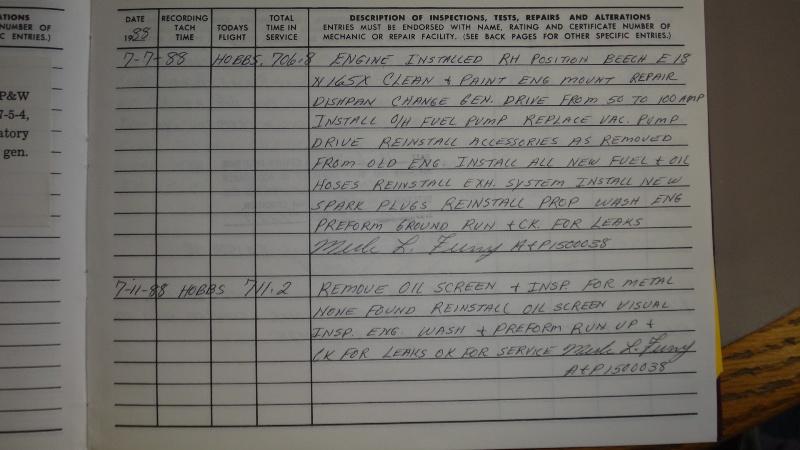 ATIONS
NUMBER OF
C ENTRIES.)
P&W
7-5-4,
atory
gen.
DATE
1988
RECORDING
TACH
TIME
TODAYS
FLIGHT
TOTAL
TIME IN
SERVICE
DESCRIPTION OF INSPECTIONS, TESTS, REPAIRS AND ALTERATIONS
ENTRIES MUST BE ENDORSED WITH NAME, RATING AND CERTIFICATE NUMBER OF
MECHANIC OR REPAIR FACILITY. (SEE BACK PAGES FOR OTHER SPECIFIC ENTRIES.)
7-7-88 HOBBS. 706.8 ENGINE INSTALLED RH POSITION BEECH E18
N165X CLEAN & PAINT ENG MOUNT REPAIR
DISHPAN CHANGE GEN. DRIVE FROM 50 TO 100 AMP
INSTALL O/H FUEL PUMP REPLACE VAC. PUMP
DRIVE REINSTALL ACCESSORIES AS REMOVED
FROM OLD ENG. INSTALL ALL NEW FUEL & OIL
HOSES REINSTALL EXH. SYSTEM INSTALL NEW
SPARK PLUGS REINSTALL PROP WASH ENG
PREFORM GROUND RUN & CK. FOR LEAKS
L. A&P1500038
7-11-88 HOBBS 711.2 REMOVE OIL SCREEN & INSP. FOR METAL
NONE FOUND REINSTALL OIL SCREEN VISUAL
INSP. ENG. WASH & PREFORM RUN UP &
CK FOR LEAKS OK FOR SERVICE L.
A&P1500038